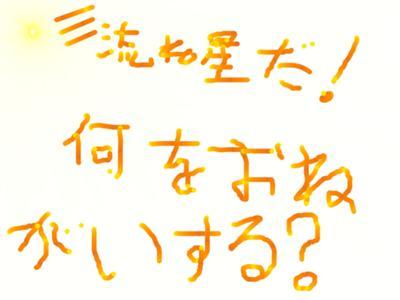 流ね星だ!
何をおね
がいする?